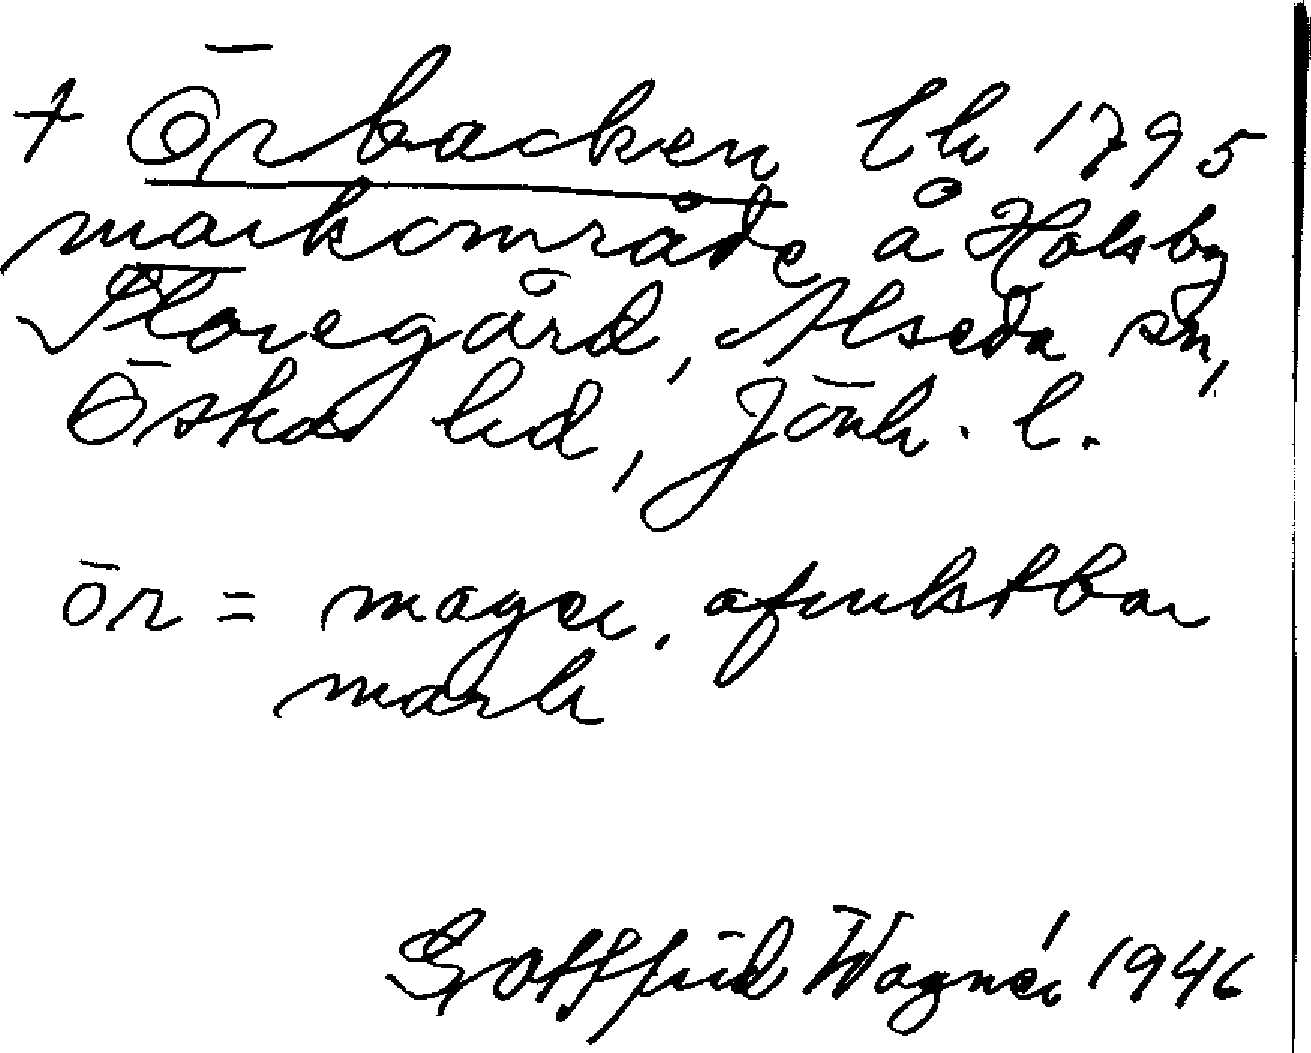 + Örbacken lh 1795
markområde å Holsby
Storegård, Alseda sn,
Östra hd, Jönk. l.
ör = mager, ofruktbar
mark
Gottfrid Wagnér 1946